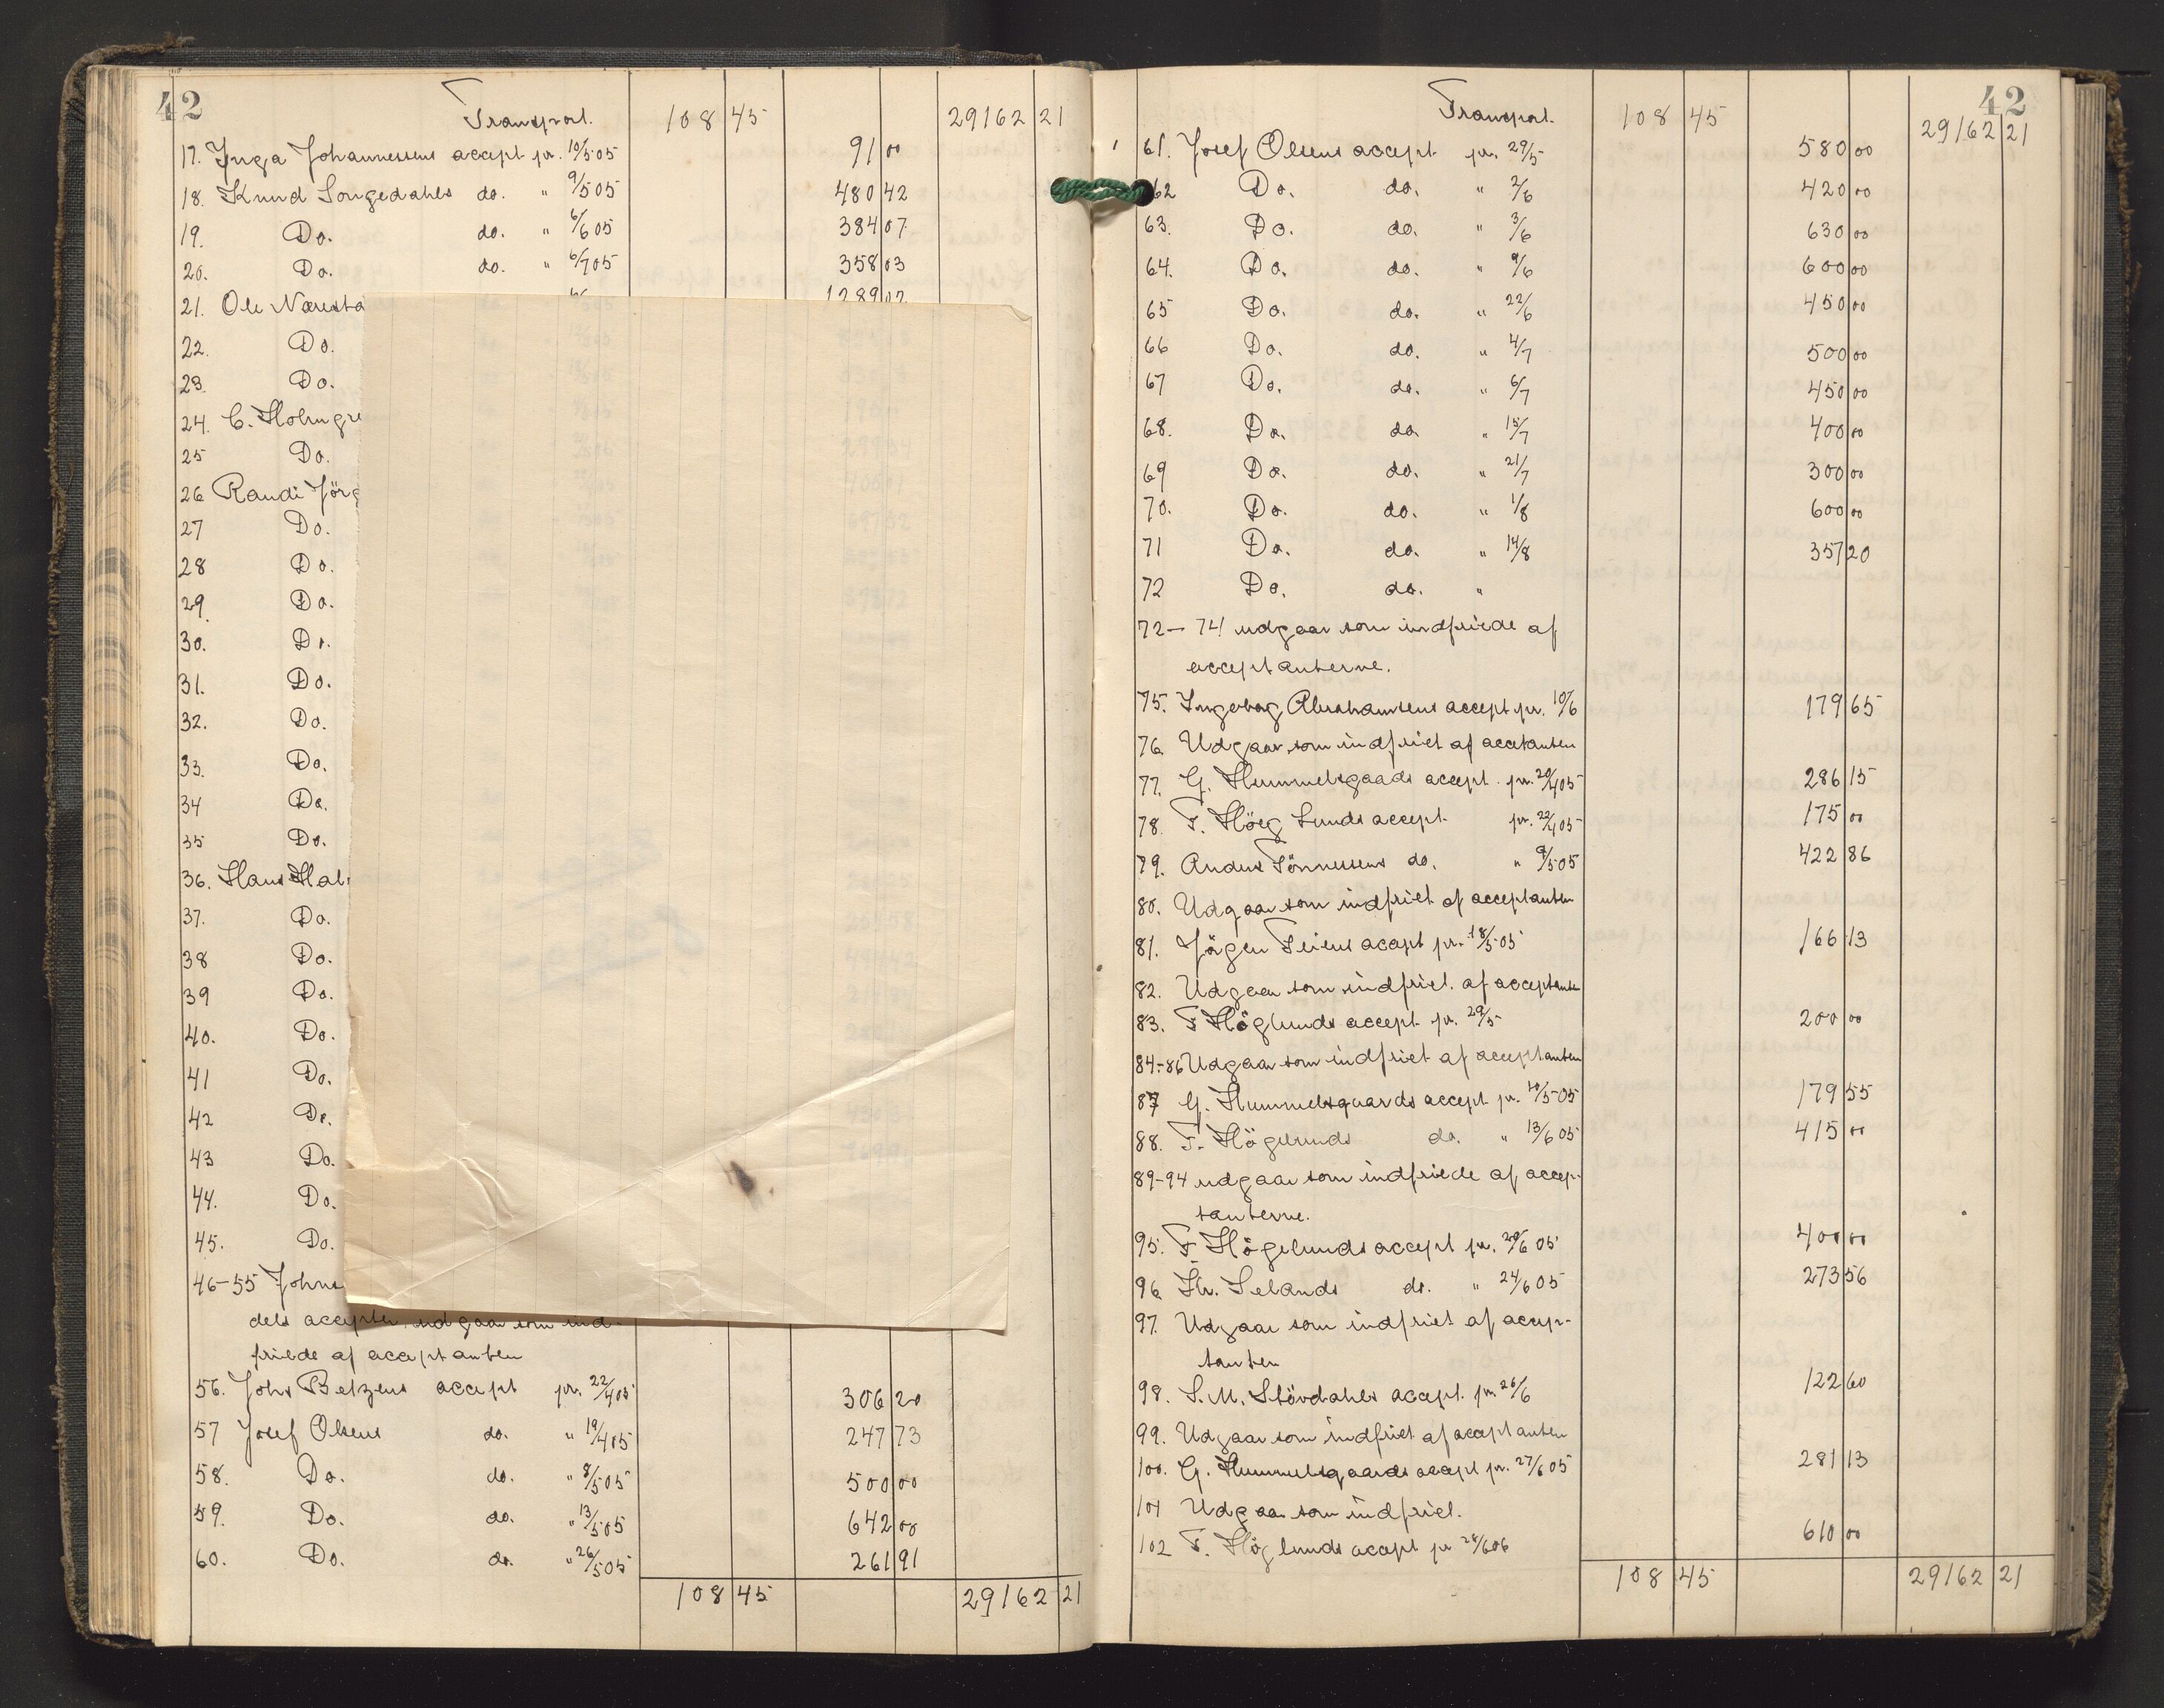 42
Transport. 108 45 29162 21
17. Inga Johannessens accept pr. 10/5 05 91 00
18. Knud Longedahls do. " 9/5 05 480 42
19. Do. do. " 6/6 05 384 07
20. Do. do. " 6/7 05 358 03
21. Ole Næresta 1289 02
22. Do.
23. Do.
24. C. Holmgre
25 Do.
26 Randi Jörg
27 Do.
28 Do.
29. Do.
30. Do.
31. Do.
32. Do.
33. Do.
34 Do.
35 Do.
36. Hans Hal
37. Do.
38 Do.
39 Do.
40. Do.
41 Do.
42 Do.
43 Do.
44. Do.
45. Do.
46-55 Johne
dels accepter udgaar som ind-
friede af acceptanten
56. Johs Betzens accept pr. 22/4 05 306 20
57 Josef Olsens do. " 19/4 05 247 73
58. Do. do. " 8/5 05 500 00
59. Do. do. " 13/5 05 642 00
60. Do. do. " 26/5 05 261 91
108 45 29162 21
42
Transport. 108 45 29162 21
61. Josef Olsens accept pr. 29/5 580 00
62 Do. do. " 2/6 420 00
63. Do. do. " 3/6 630 00
64. Do. do. " 9/6 600 00
65 Do. do. " 22/6 450 00
66 Do. do. " 4/7 500 00
67 Do. do. " 6/7 450 00
68. Do. do " 15/7 400 00
69 Do. do. " 21/7 300 00
70. Do. do. " 1/8 600 00
71 Do. do. " 14/8 357 20
72 Do. do. "
72-74 udgaar som indfriede af
acceptanterne.
75. Ingebog Abrahamsens accept pr. 10/6 179 65
76 Udgaar som indfriet af acceptanten
77. G. Hummelsgaads accept pr. 20/4 05 286 15
78. F. Höeg Lunds accept pr. 22/4 05 175 00
79. Anders Tönnessens do. " 9/5 05 422 86
80. Udgaar som indfriet af acceptanten
81. Jörgen Teiens accept pr. 18/5 05 166 13
82. Udgaar som indfriet. af acceptanten
83. F Höglunds accept pr. 29/5 200 00
84-86 Udgaar som indfriet af acceptanten
87 G. Hummelsgaards accept pr. 10/5 05 179 55
88. F. Högelunds do. " 13/6 05 415 00
89-94 udgaar som indfriede af accep-
tanterne.
95. F Högelunds accept pr. 20/6 05 400 00
96 Kr. Selands do. " 24/6 05 273 56
97. Udgaar som indfriet af accep-
tanten
98. S. M. Stövdahls accept. pr. 26/6 122 60
99. Udgaar som indfriet af acceptanten
100. G. Hummelsgaards accept pr. 27/6 05 281 13
101 Udgaar som indfriet.
102 F. Höglunds accept pr 28/6 06 610 00
108 45 29162 21